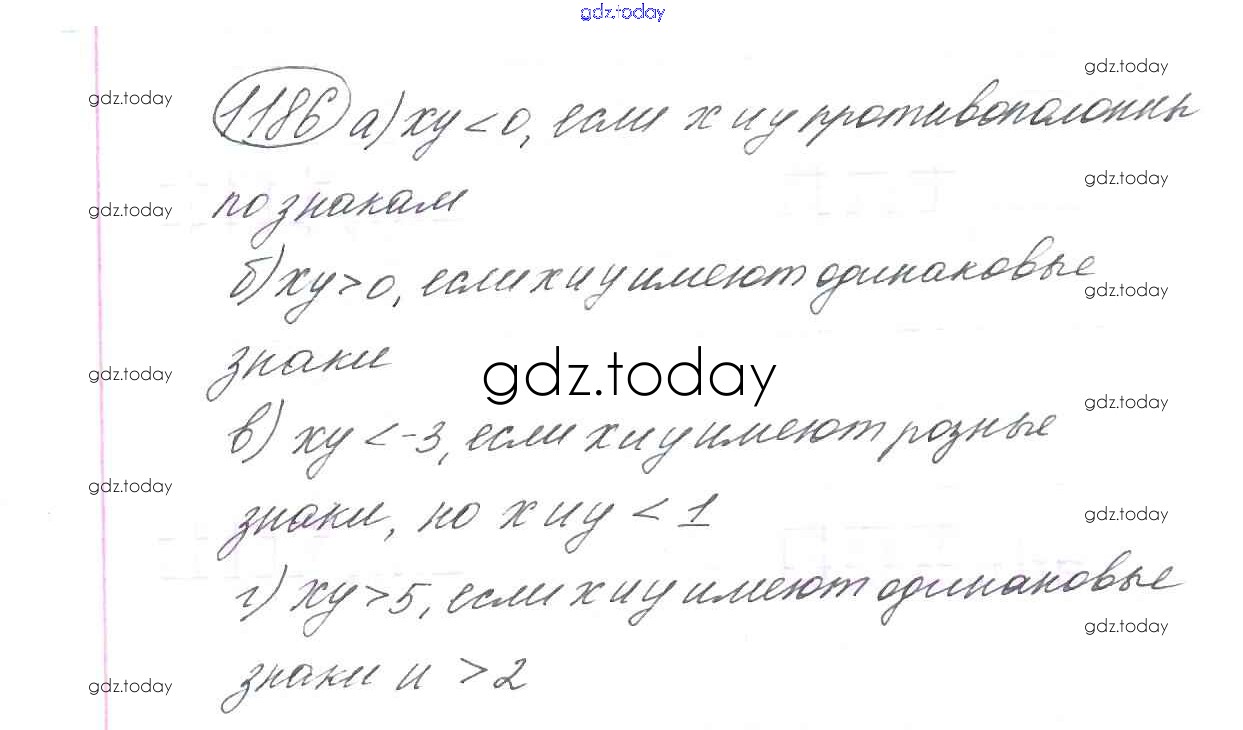 gdz.today
gdz.today
gdz.today
1186 а) xy < 0, если x и y противополонны
gdz.today
gdz.today
по знакам
б) xy > 0, если x и y имеют одинаковые
gdz.today
знаки
gdz.today
gdz.today
gdz.today
в) xy < -3, если x и y имеют розные
gdz.today
знаки, но x и y < 1
gdz.today
г) xy > 5, если x и y имеют одинановые
gdz.today
знаки и > 2
gdz.today